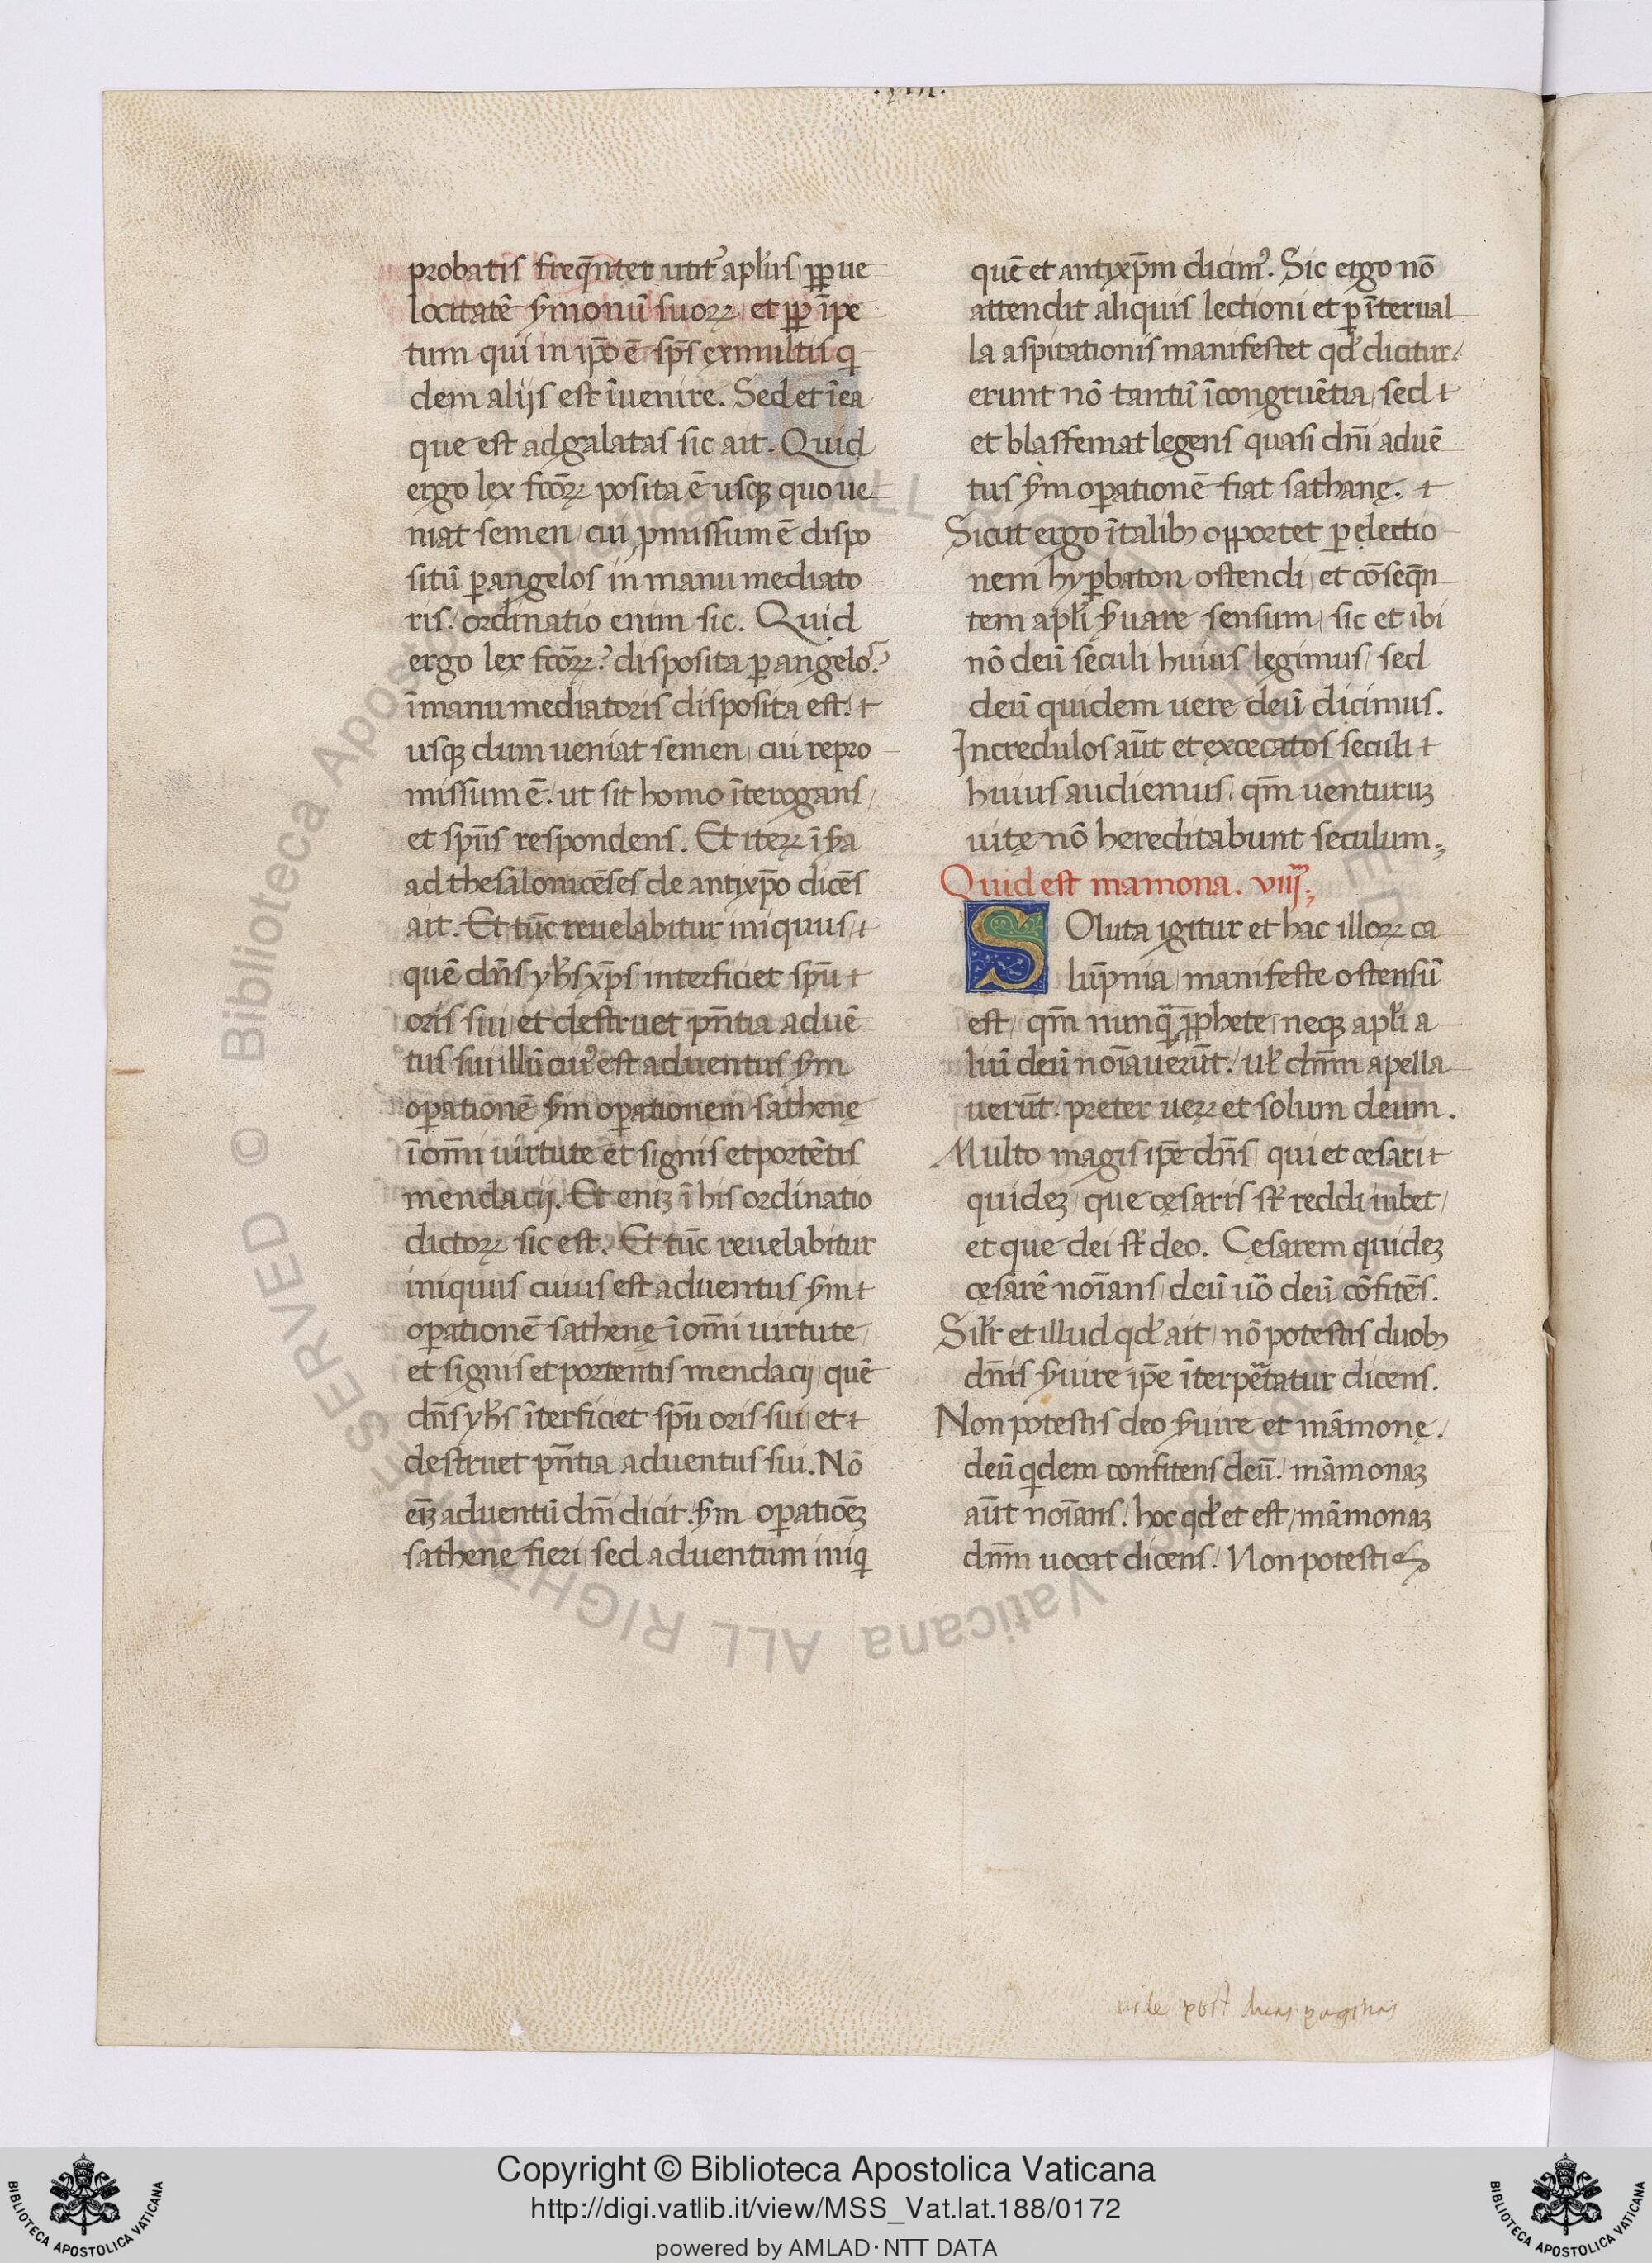 probatis freq̄nter utit᷑ apl'us / ꝓꝑ ue
locitatē ẜmonū suoꝝ / et ꝓꝑ īpe
tum qui in ip̄o ē sp̄s ex multis q
dem alijs est īuenire. Sed et ī ea
que est ad galatas sic ait. Quid
ergo lex fc̄oꝝ posita ē usqꝫ quo ue
niat semen / cui ꝓmissum ē dispo
sitū ꝑ angelos in manu mediato
ris / ordinatio enim sic. Quid
ergo lex fc̄oꝝ? disposita ꝑ angelos?
ī manu mediatoris disposita est. t
usqꝫ dum ueniat semen / cui repro
missum ē. ut sit homo īterogans /
et sp̄us respondens. Et iteꝝ ī ẜa
ad thesalonicēses de antixp̄o dicēs
ait. Et tūc reuelabitur iniquus / t
quē dn̄s yh̄s xp̄s interficiet sp̄u t
oris sui / et destruet pn̄tia aduē
tus sui illū cui᷒ est aduentus ẜm
oꝑationē ẜm oꝑationem sathenę
ī om̄i uirtute et signis et portētis
mendacij. Et eniꝫ ī his ordinatio
dictoꝝ sic est. Et tūc reuelabitur
iniquus cuius est aduentus ẜm t
oꝑationē sathenę ī om̄i uirtute /
et signis et portentis mendacij / quē
dn̄s yh̄s īterficiet sp̄u oris sui / et t
destruet pn̄tia aduentus sui. Nō
eīꝫ aduentū dn̄i dicit. ẜm oꝑationēꝫ
sathenę fieri / sed aduentum iniq
quē et antixp̄m dicim᷒. Sic ergo nō
attendit aliquis lectioni et ꝑ īterual
la aspirationis manifestet qd' dicitur /
erunt nō tantū īcongruētia / sed t
et blasfemat legens quasi dn̄i aduē
tus ẜm oꝑationē fiat sathanę. t
Sicut ergo ī talibꝫ opportet ꝑ electio
nem hyꝑbaton ostendi / et cōseq̄n
tem apl'i ẜuare sensum / sic et ibi
nō deū seculi huius legimus / sed
deū quidem uere deū dicimus.
Incredulos aūt et excecatos seculi t
huius audiemus / qm̄ uenturuꝫ
uitę nō hereditabunt seculum;
Quid est mamona. viiij;
Soluta igitur et hac illoꝝ ca
lūpnia / manifeste ostensū
est / qm̄ nunqᷓ ꝓphete / neqꝫ apl'i a
liū deū noīauerūt. ul' dn̄m apella
uerūt. preter ueꝝ et solum deum.
Multo magis ip̄e dn̄s / qui et cesari t
quideꝫ / que cęsaris st̄ reddi iubet /
et que dei st̄ deo. Cęsarem quideꝫ
cęsarē noīans / deū uō deū cōfitēs.
Sil'r et illud qd' ait / nō potestis duobꝫ
dn̄is ẜuire ip̄e īterpetᷓatur dicens.
Non potestis deo ẜuire et māmonę.
deū qdem confitens deū. māmonaꝫ
aūt noīans. hoc qd' et est / māmonaꝫ
dn̄m uocat dicens. Non potestis
vide post duas paginas
© Biblioteca Apostolica Vaticana ALL RIGHTS RESERVED
Copyright © Biblioteca Apostolica Vaticana
http://digi.vatlib.it/view/MSS_Vat.lat.188/0172
powered by AMLAD·NTT DATA
BIBLIOTECA APOSTOLICA VATICANA
BIBLIOTECA APOSTOLICA VATICANA